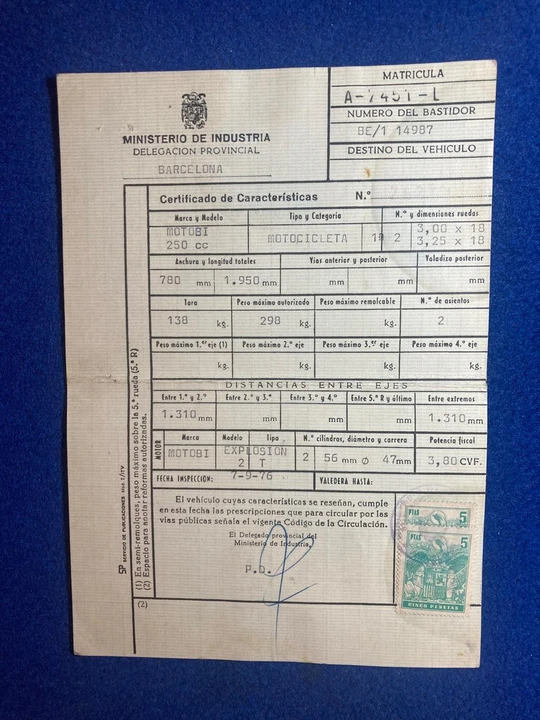 MATRICULA
A-7451-L
NUMERO DEL BASTIDOR
BE/1 14987
DESTINO DEL VEHICULO
MINISTERIO DE INDUSTRIA
DELEGACION PROVINCIAL
BARCELONA
Certificado de Características N.º
Marca y Modelo Tipo y Categoría N.º y dimensiones ruedas
MOTOBI 250 cc MOTOCICLETA 1ª 2 3,00 x 18
3,25 x 18
Anchura y longitud totales Vías anterior y posterior Voladizo posterior
780 mm 1.950 mm mm mm mm
Tara Peso máximo autorizado Peso máximo remolcable N.º de asientos
138 kg. 298 kg. kg. 2
Peso máximo 1.er eje (1) Peso máximo 2.º eje Peso máximo 3.er eje Peso máximo 4.º eje
kg. kg. kg. kg.
DISTANCIAS ENTRE EJES
Entre 1.º y 2.º Entre 2.º y 3.º Entre 3.º y 4.º Entre 5.ª R y último Entre extremos
1.310 mm mm mm mm 1.310 mm
MOTOR
Marca Modelo Tipo N.º cilindros, diámetro y carrera Potencia fiscal
MOTOBI EXPLOSION 2 T 2 56 mm ø 47 mm 3,80 CVF.
FECHA INSPECCION: 7-9-76 VALEDERA HASTA:
El vehículo cuyas características se reseñan, cumple
en esta fecha las prescripciones que para circular por las
vías públicas señala el vigente Código de la Circulación.
El Delegado provincial del
Ministerio de Industria,
P.D.
PTAS 5
PTAS 5
CINCO PESETAS
(1) En semi-remolques, peso máximo sobre la 5.ª rueda (5.ª R)
(2) Espacio para anotar reformas autorizadas.
SP SERVICIO DE PUBLICACIONES
(2)